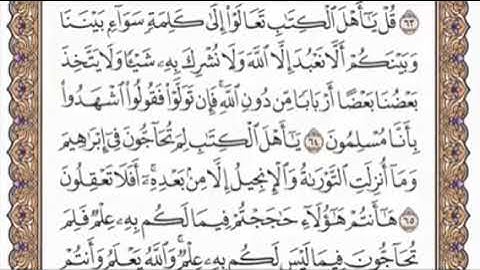 ٦٣ قُلْ يَٰٓأَهْلَ ٱلْكِتَٰبِ تَعَالَوْا۟ إِلَىٰ كَلِمَةٍ سَوَآءٍۭ بَيْنَنَا
وَبَيْنَكُمْ أَلَّا نَعْبُدَ إِلَّا ٱللَّهَ وَلَا نُشْرِكَ بِهِۦ شَيْـًٔا وَلَا يَتَّخِذَ
بَعْضُنَا بَعْضًا أَرْبَابًا مِّن دُونِ ٱللَّهِ ۚ فَإِن تَوَلَّوْا۟ فَقُولُوا۟ ٱشْهَدُوا۟
بِأَنَّا مُسْلِمُونَ ٦٤ يَٰٓأَهْلَ ٱلْكِتَٰبِ لِمَ تُحَآجُّونَ فِىٓ إِبْرَٰهِيمَ
وَمَآ أُنزِلَتِ ٱلتَّوْرَىٰةُ وَٱلْإِنجِيلُ إِلَّا مِنۢ بَعْدِهِۦٓ ۚ أَفَلَا تَعْقِلُونَ
٦٥ هَٰٓأَنتُمْ هَٰٓؤُلَآءِ حَٰجَجْتُمْ فِيمَا لَكُم بِهِۦ عِلْمٌ فَلِمَ
تُحَآجُّونَ فِيمَا لَيْسَ لَكُم بِهِۦ عِلْمٌ ۚ وَٱللَّهُ يَعْلَمُ وَأَنتُمْ